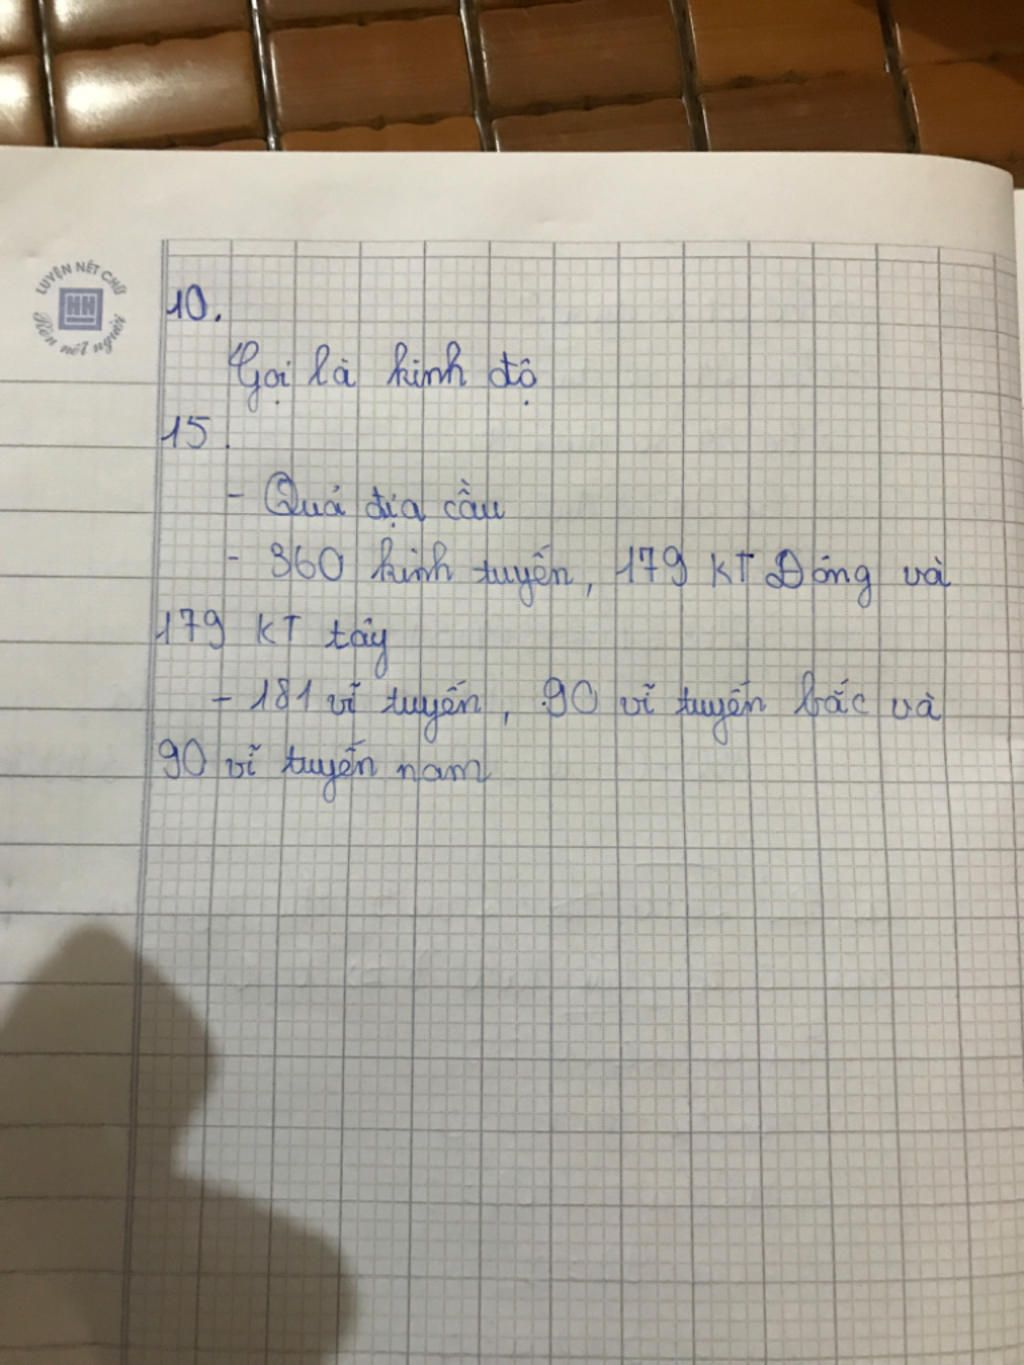 LUYỆN NÉT CHỮ
HN
Rèn nết người
10.
Gọi là kinh độ
15.
- Quả địa cầu
- 360 kinh tuyến, 179 KT Đông và
179 KT tây
- 181 vĩ tuyến, 90 vĩ tuyến bắc và
90 vĩ tuyến nam